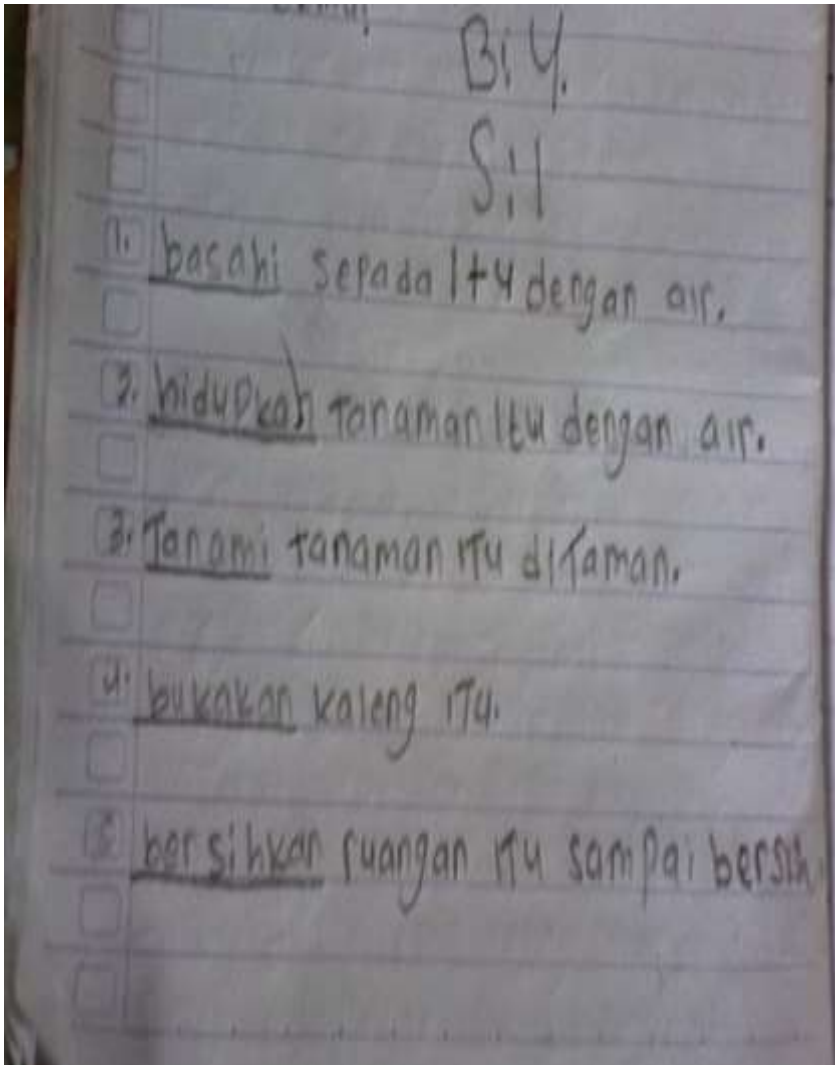 Bi 4.
S:1
1. basahi sepada itu dengan air.
2. hidupkah Tanaman itu dengan air.
3. Tanami tanaman itu di Taman.
4. bukakan kaleng iTu.
5 bersihkan ruangan iTu sampai bersih